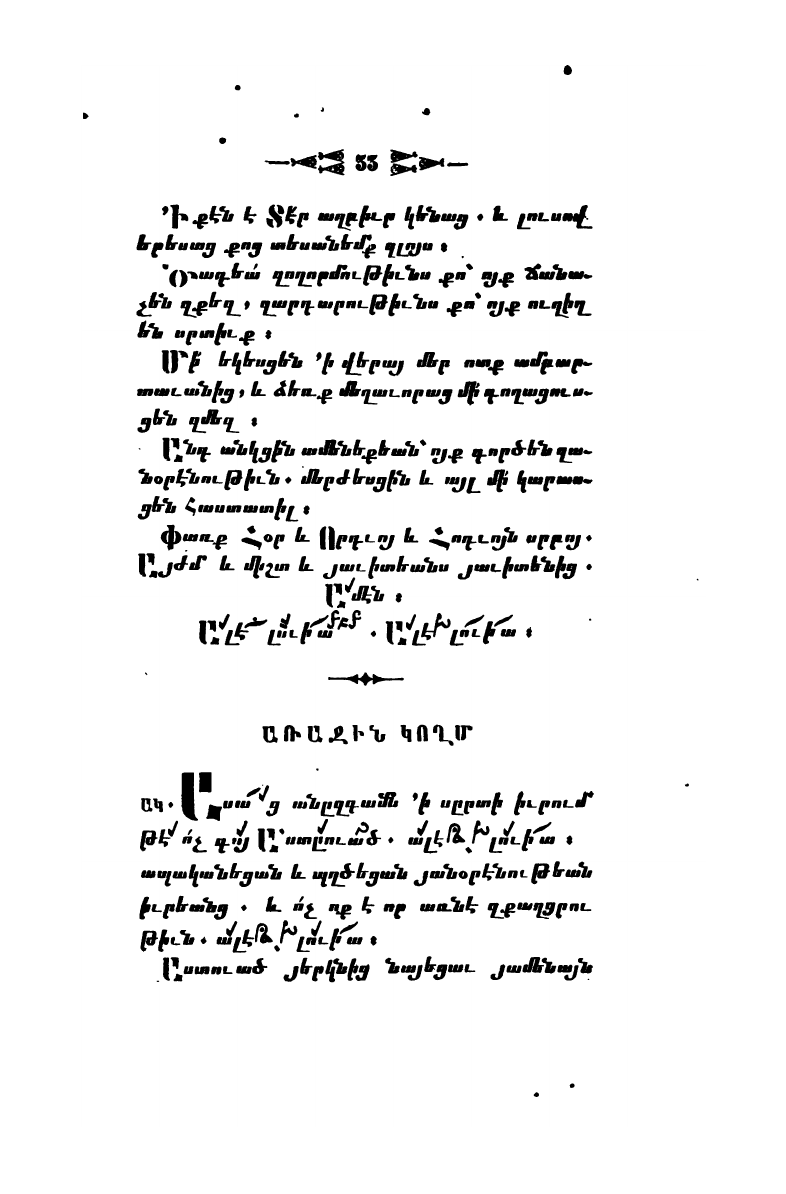 53
՚Ի քէն է Տէր աղբիւր կենաց. և լուսով
երեսաց քոց տեսանեմք զլոյս։
Օրագեա՛ զողորմութիւնս քո՝ ոյք ճանա-
չեն զքեզ, զարդարութիւնս քո՝ ոյք ուղիղ
են սրտիւք։
Մի՛ եկեսցեն ՚ի վերայ մեր ոտք ամբար-
տաւանից, և ձեռք մեղաւորաց մի՛ գողացուս-
ցեն զմեզ։
Անդ անկցին ամենեքեան՝ ոյք գործեն զա-
նօրէնութիւն. մերժեսցին և այլ մի՛ կարաս-
ցեն հաստատիլ։
Փառք Հօր և Որդւոյ և Հոգւոյն սրբոյ.
Այժմ և միշտ և յաւիտեանս յաւիտենից.
Ամէն։
Ալէլուիա. Ալէլուիա։
ԱՌԱՋԻՆ ԿՈՂՄ
ԱԿ. Ասաց անըզգամն ՚ի սըրտի իւրում
թէ ո՛չ գոյ Աստուած. ալէլուիա։
ապականեցան և պղծեցան յանօրէնութեան
իւրեանց. և ո՛չ ոք է որ առնէ զքաղցրու
թիւն. ալէլուիա։
Աստուած յերկնից նայեցաւ յամենայն